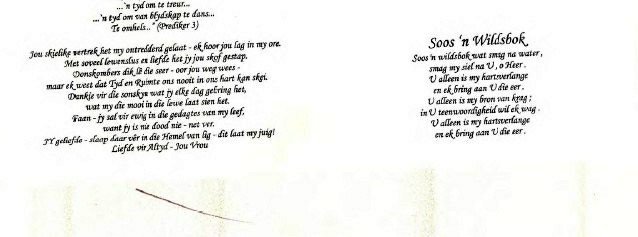 ...'n tyd om te treur...
...'n tyd om van blydskap te dans...
Te omhels.." (Prediker 3)
Jou skielike vertrek het my ontredderd gelaat - ek hoor jou lag in my ore.
Met soveel lewenslus en liefde het jy jou skof gestap.
Donskombers dik lê die seer - oor jou weg wees -
maar ek weet dat Tyd en Ruimte ons nooit in ons hart kan skei.
Dankie vir die sonskyn wat jy elke dag gebring het,
wat my die mooi in die lewe laat sien het.
Faan - jy sal vir ewig in die gedagtes van my leef,
want jy is nie dood nie - net ver.
JY geliefde - slaap daar vêr in die Hemel van lig - dit laat my juig!
Liefde vir Altyd - Jou Vrou
Soos 'n Wildsbok
Soos 'n wildsbok wat smag na water,
smag my siel na U, o Heer.
U alleen is my hartsverlange
en ek bring aan U die eer.
U alleen is my bron van krag;
in U teenwoordigheid wil ek wag.
U alleen is my hartsverlange
en ek bring aan U die eer.